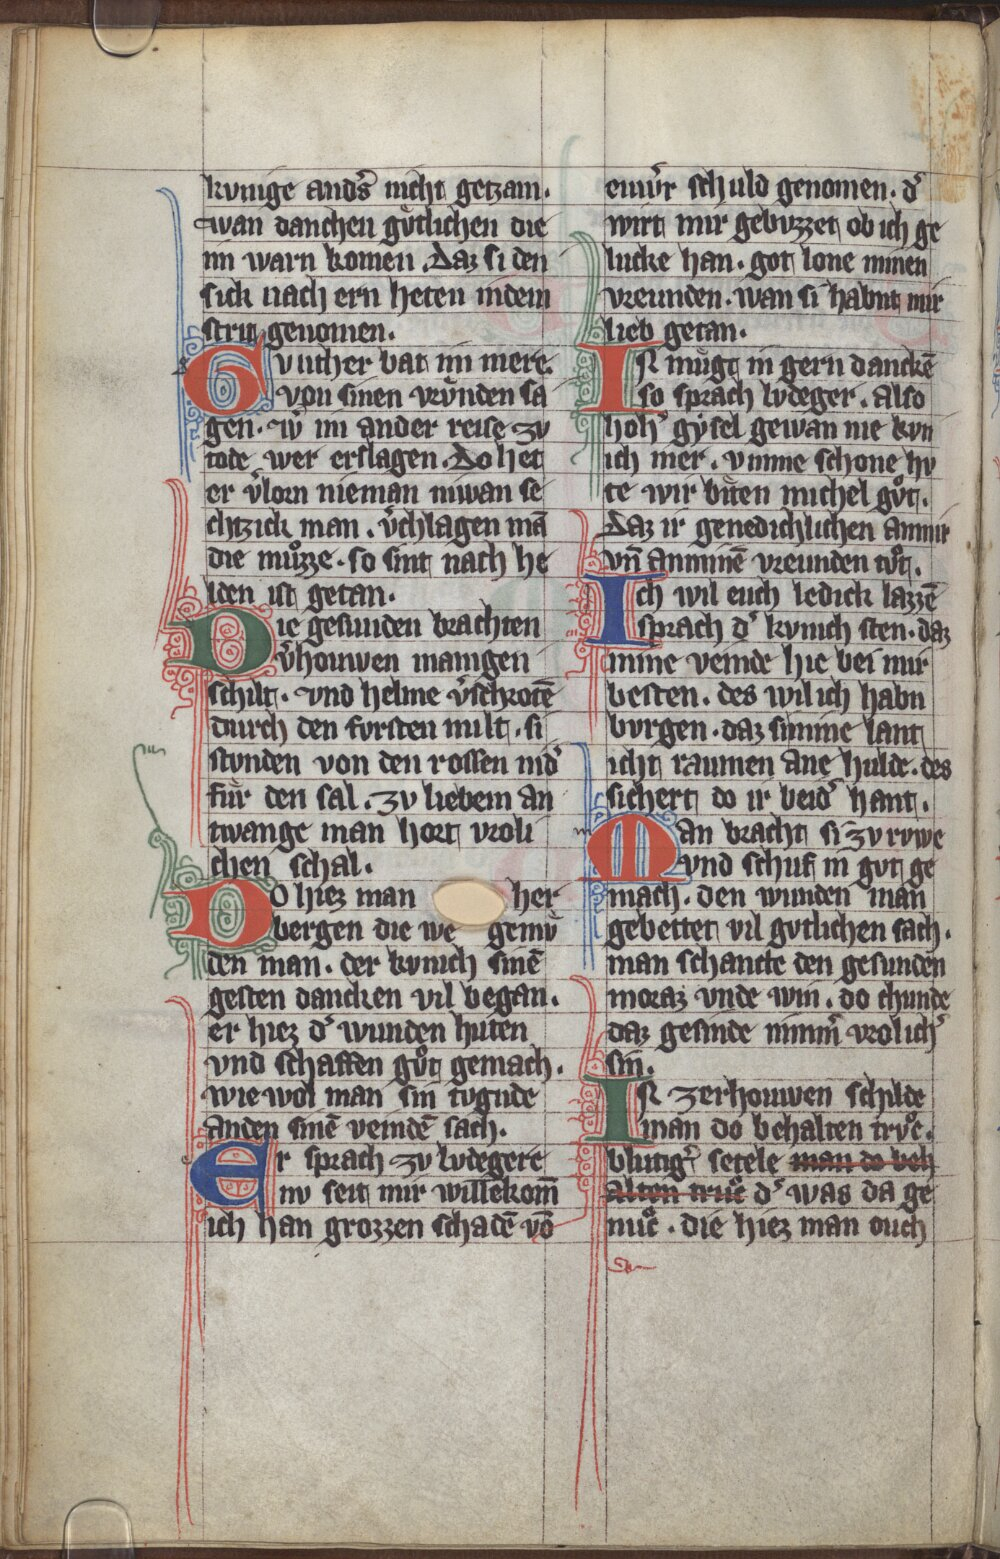 kunige andͤs nicht getzam.
wan danchen guͤtlichen die
im warn komen. Daz si den
sick nach ern heten indem
strit genomen.
Gunther bat im mere.
von sinen vruͤnden sa
gen. wͤ im ander reise zu
tode wer erslagen. Do het
er v̾lorn nieman niwan se
chtzick man. v̾chlagen mā
die muͦzze. so sint nach he
lden ist getan.
Die gesunden brachten
v̾houwen manigen
schilt. vnd helme v̾schrotē
durch den fursten milt. si
stunden von den rossen nid̾
fuͤr den sal. zu liebem an
twange man hort vroli
chen schal.
Do hiez man her
bergen die we gemuͤ
den man. der kunich sinē
gesten dancken vil began.
er hiez d̾ wunden huten
vnd schaffen guͦt gemach.
wie wol man sin tugnde
anden sinē veindē sach.
Er sprach zu ludegere
nu seit mir willekom̄
ich han grozzen schadē vō
euwͤr schuld genomen. d̾
wirt mir gebuzzet ob ich ge
lucke han. got lone minen
vreunden. wan si habnt mir
lieb getan.
Ir muͤgt in gern danckē
so sprach ludeger. Also
hoh̾ gysel gewan nie kun
ich mer. vmme schone hu
te wir biͤten michel guͦt.
Daz ir genedichlichen an mir
vn̄ an minē vreunden tuͦt.
Ich wil euch ledick lazzē
sprach d̾ kunich sten. daz
mine veinde hie bei mir
besten. des wil ich habn
burgen. daz si mine lant
icht raumen ane hulde. des
sichert do ir beid̾ hant.
Man bracht si zu ruwe
vnd schuf in gut ge
mach. den wunden man
gebetten vil gutlichen sach.
man schancte den gesunden
moraz vnde win. do chunde
daz gesinde nimm̾ vrolich̾
sin.
Ir zerhouwen schilde
man do behalten truͦc.
blutig̾ setele man do beh
alten truͦc d̾ was da ge
nuͦc. die hiez man ouch